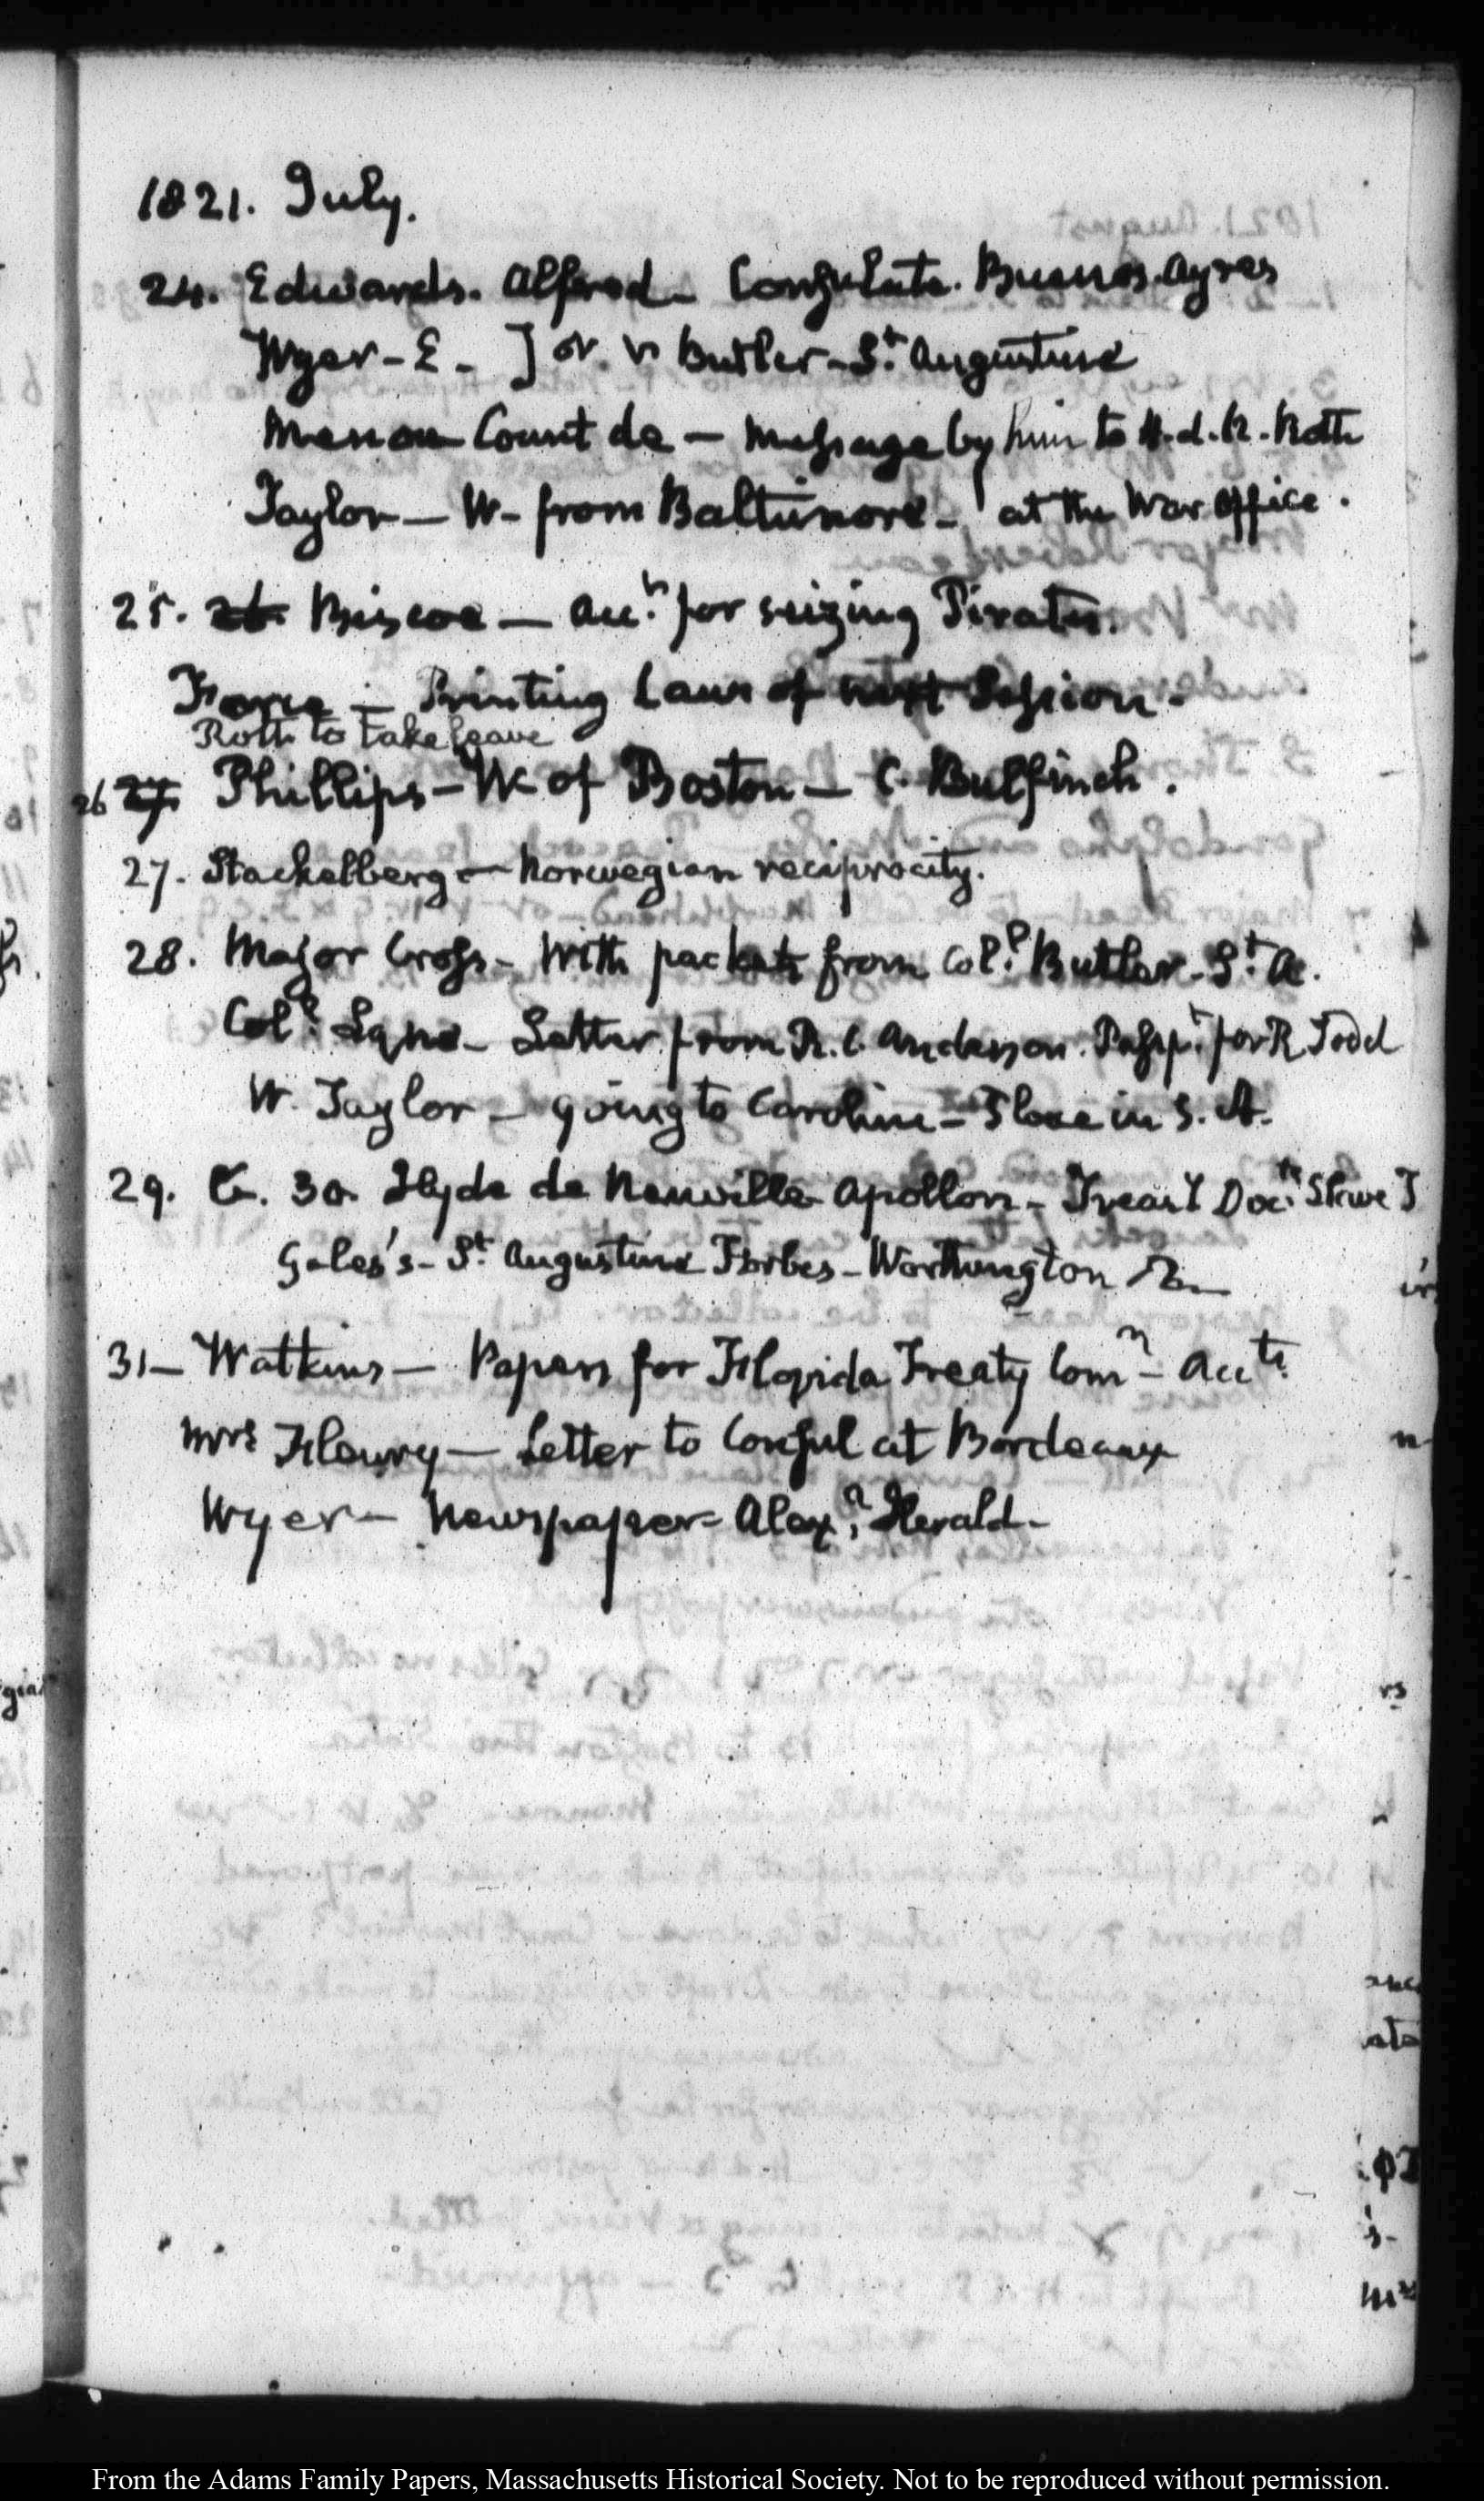 1821. July.
24. Edwards. Alfred – Consulate. Buenos Ayres
Wyer – E – ] Butler – St. Augustine
Menou Count de – Message by him to H. d. N. Roth
Taylor – W – from Baltimore – at the War Office.
25. 26. Biscoe – for seizing Pirates.
Force – Printing Laws of next Session –
Roth to take leave
26 27. Phillips – W of Boston – C. Bulfinch.
27. Stackelberg – Norwegian reciprocity.
28. Major Cross – With packets from Coll. Butler – St. A.
Coll. Lyne – Letter from R. C. Anderson. Passpt. for R Todd
W. Taylor – going to Caroline – in S. A.
29. 30. Hyde de Neuville – Apollon – Slave T
Gales's – St. Augustine Forbes – Worthington
31 – Watkins – Papers for Florida Treaty Comn – Accts.
Mrs Fleury – Letter to Consul at Bordeaux
Wyer – Newspaper – Alexa. Herald –
From the Adams Family Papers, Massachusetts Historical Society. Not to be reproduced without permission.